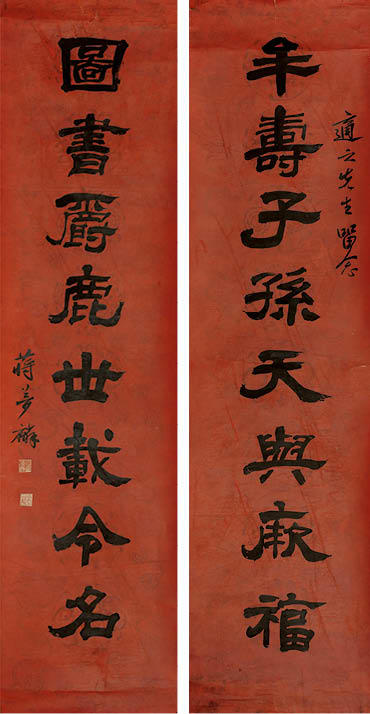 適之先生留念
年壽子孫天與厥福
圖書爵鹿世載令名
蔣夢麟